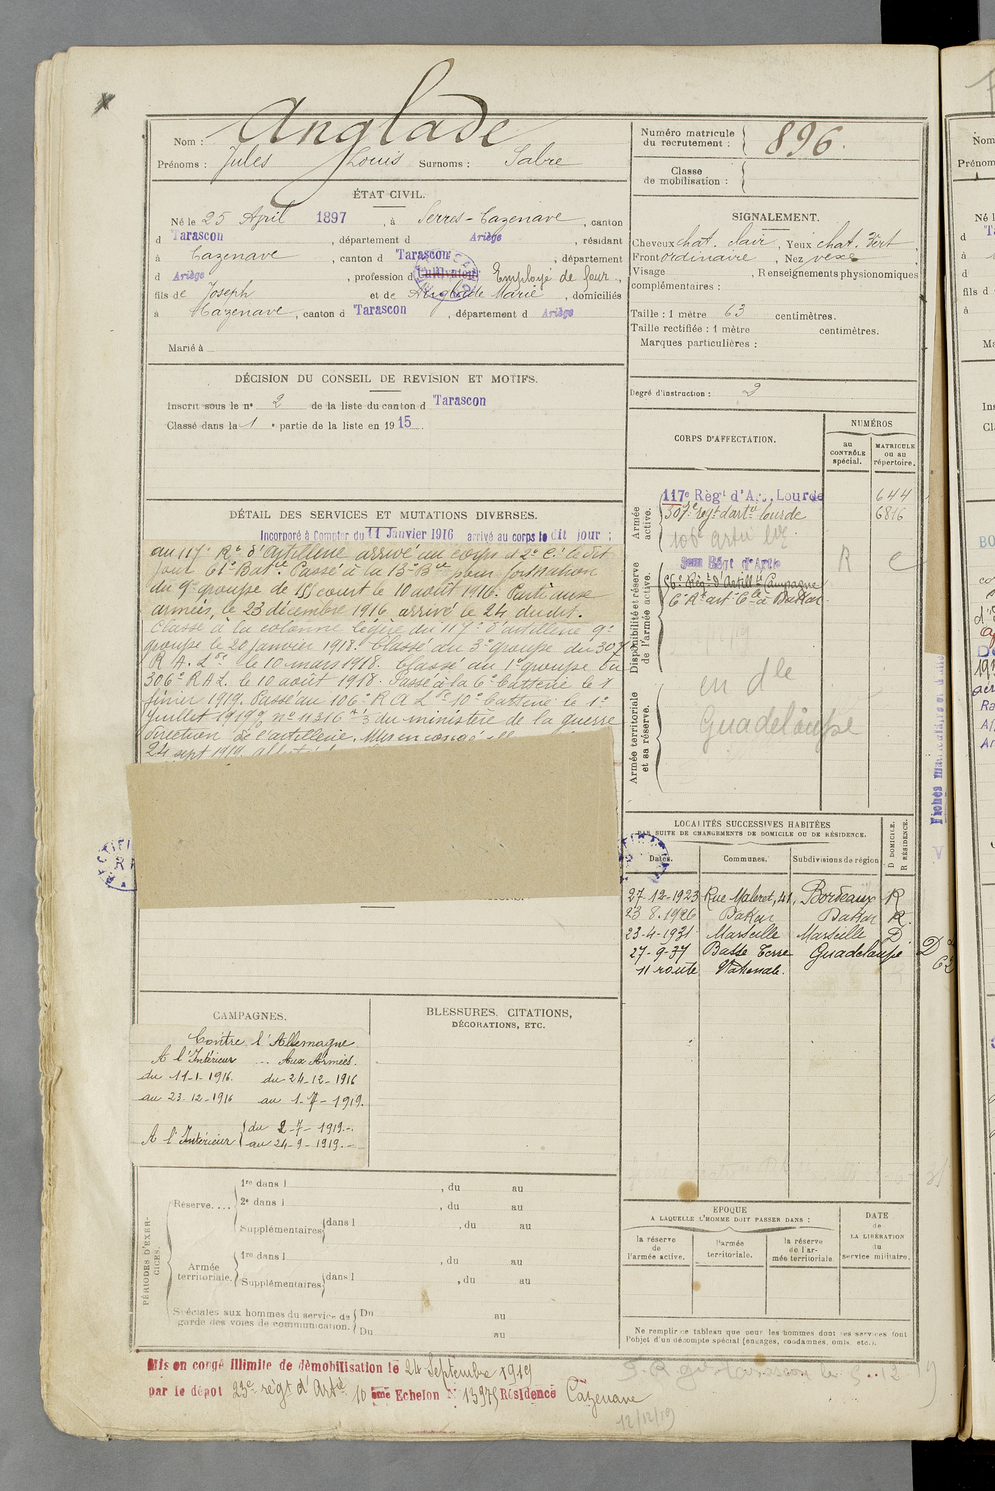 Nom : Anglade
Prénoms : Jules Louis Surnoms : Sabre
Numéro matricule du recrutement : 896.
Classe de mobilisation :
ÉTAT CIVIL.
Né le 25 April 1897, à Serres-Cazenave, canton
d Tarascon, département d Ariège, résidant
à Cazenave, canton d Tarascon, département
d Ariège, profession d Cultivateur Employé de
fils de Joseph et de Anglade Marie, domiciliés
à Cazenave, canton d Tarascon, département d Ariège
Marié à
SIGNALEMENT.
Cheveux chat. clair, Yeux chat. Vert,
Front ordinaire, Nez vexe
Visage , Renseignements physionomiques
complémentaires :
Taille : 1 mètre 63 centimètres.
Taille rectifiée : 1 mètre centimètres.
Marques particulières :
Degré d'instruction : 2
DÉCISION DU CONSEIL DE REVISION ET MOTIFS.
Inscrit sous le n° 2 de la liste du canton d Tarascon
Classé dans la 1 e partie de la liste en 1915
DÉTAIL DES SERVICES ET MUTATIONS DIVERSES.
Incorporé à Compter du 11 Janvier 1916 arrivé au corps le dit jour ;
au 117e Rt d'artillerie arrivé au corps et 2e C. le dit
jour 61e Batie. Passé à la 13e Bie pour formation
du 9e groupe de court le 10 août 1916. Parti aux
armées, le 23 décembre 1916, arrivé le 24 dudit.
Classé à la colonne légère du 117e d'artillerie 9e
groupe le 20 janvier 1918. Classé au 3e groupe du 307
R.A.L. le 10 mars 1918. Classé au 1er groupe du
306e R A L. le 10 août 1918. Passé à la 6e batterie le 8
février 1919. Passé au 106e R A L 10e batterie le 1er
juillet 1919 n° 11316 du ministère de la guerre
direction de l'artillerie. Mis en congé
24 sept 1919
CORPS D'AFFECTATION.
NUMÉROS
au CONTRÔLE spécial.
MATRICULE ou au répertoire.
Armée active.
117e Règt d'Art. Lourde 644
307e regt d'artie lourde 6816
106e artie
Disponibilité et réserve de l'armée active.
Régt d'Artie
56e Régt d'Artill ie Campagne
6e Rt art Cle à Dakar
R C
Armée territoriale et sa réserve.
en dle
Guadeloupe
LOCALITÉS SUCCESSIVES HABITÉES
PAR SUITE DE CHANGEMENTS DE DOMICILE OU DE RÉSIDENCE.
Dates. Communes. Subdivisions de région D DOMICILE. R RÉSIDENCE.
27-12-1923 Rue Maleret, 41, Bordeaux R
23.8.1926 Dakar Dakar R.
23-4-1931 Marseille Marseille D
27-9-37 Basse Terre Guadeloupe
11 route Nationale.
CAMPAGNES.
Contre l'Allemagne
A l'Intérieur .. Aux Armées.
du 11-1-1916. du 24-12-1916
au 23-12-1916 au 1-7-1919.
A l'Intérieur du 2-7-1919.-
au 24-9-1919.-
BLESSURES. CITATIONS,
DÉCORATIONS, ETC.
PÉRIODES D'EXERCICES.
Réserve....
1re dans l , du au
2e dans l , du au
Supplémentaires dans l , du au
Armée territoriale.
1re dans l , du au
Supplémentaires dans l , du au
Spéciales aux hommes du service de garde des voies de communication.
Du au
Du au
EPOQUE
A LAQUELLE L'HOMME DOIT PASSER DANS :
la réserve de l'armée active.
l'armée territoriale.
la réserve de l'armée territoriale
DATE de LA LIBÉRATION du service militaire.
Ne remplir ce tableau que pour les hommes dont les services font
l'objet d'un décompte spécial (engagés, condamnés, omis, etc.).
Mis en congé illimité de démobilisation le 24 Septembre 1919
par le dépôt 23e règt d'Artie 10 ème Echelon N° 13975 Résidence Cazenave
12/12/19